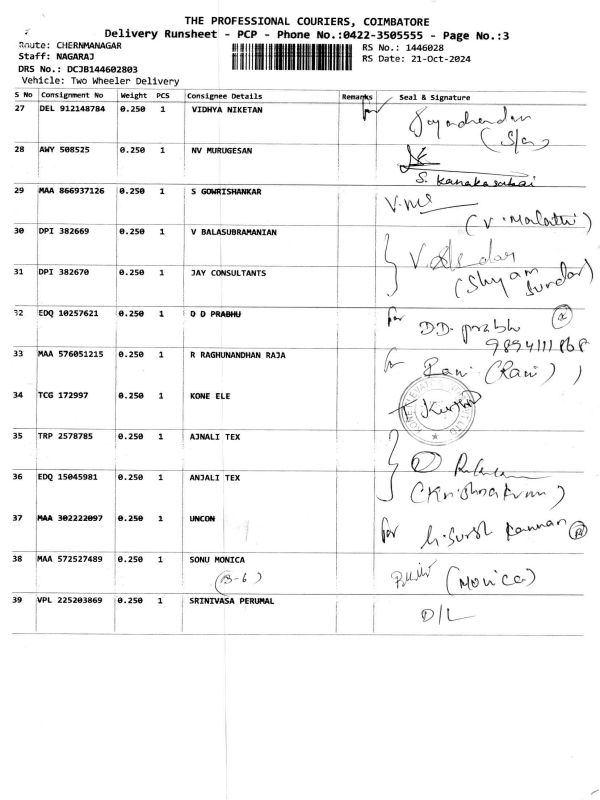 THE PROFESSIONAL COURIERS, COIMBATORE
Delivery Runsheet - PCP - Phone No.:0422-3505555 - Page No.:3
Route: CHERNMANAGAR
RS No.: 1446028
Staff: NAGARAJ
RS Date: 21-Oct-2024
DRS No.: DCJB144602803
Vehicle: Two Wheeler Delivery
S No Consignment No Weight PCS Consignee Details Remarks Seal & Signature
27 DEL 912148784 0.250 1 VIDHYA NIKETAN for
28 AWY 508525 0.250 1 NV MURUGESAN
S. Kanakasabai
29 MAA 866937126 0.250 1 S GOWRISHANKAR
(V. Malathi)
30 DPI 382669 0.250 1 V BALASUBRAMANIAN
31 DPI 382670 0.250 1 JAY CONSULTANTS
(Shyam Sundar)
32 EDQ 10257621 0.250 1 D D PRABHU for DD. prabhu
9894111868
33 MAA 576051215 0.250 1 R RAGHUNANDHAN RAJA for Rani (Rani)
34 TCG 172997 0.250 1 KONE ELE
35 TRP 2578785 0.250 1 AJNALI TEX
36 EDQ 15045981 0.250 1 ANJALI TEX
37 MAA 302222097 0.250 1 UNCON for
38 MAA 572527489 0.250 1 SONU MONICA (Monica)
(B-6)
39 VPL 225203869 0.250 1 SRINIVASA PERUMAL D/L